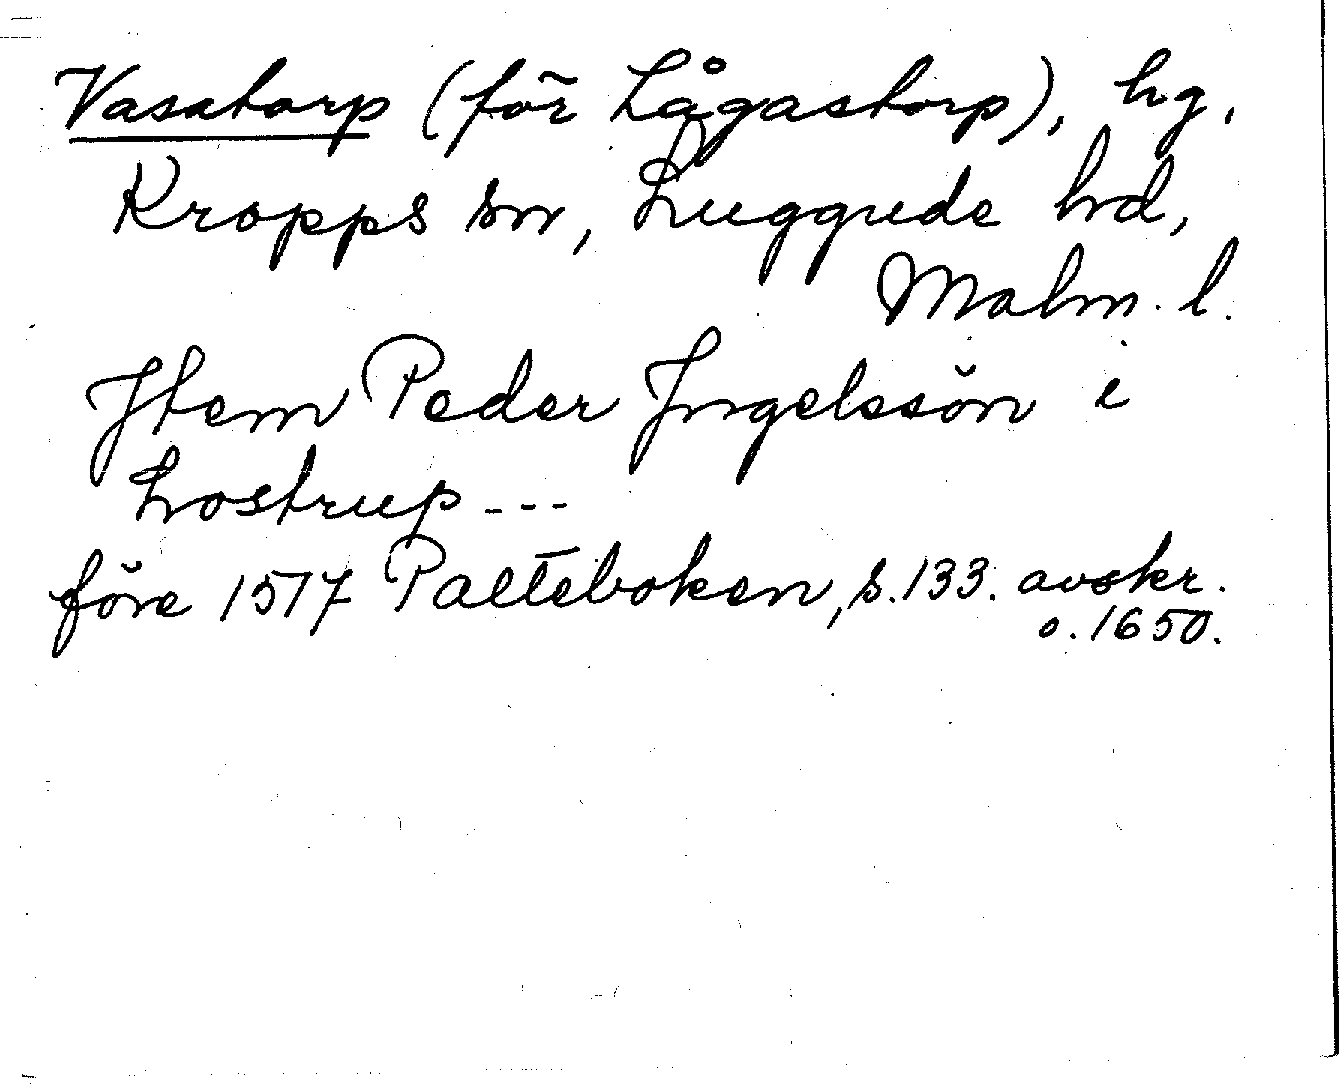 Vasatorp (för Lågastorp), hg,
Kropps sn, Luggude hd,
Malm. l.
Jtem Peder Jngelssön i
Lrostrup ---
före 1517 Palteboken, s. 133. avskr.
o. 1650.